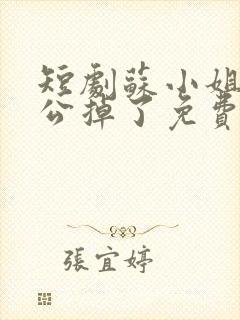 短劇蘇小姐
公掉了免費
張宜婷